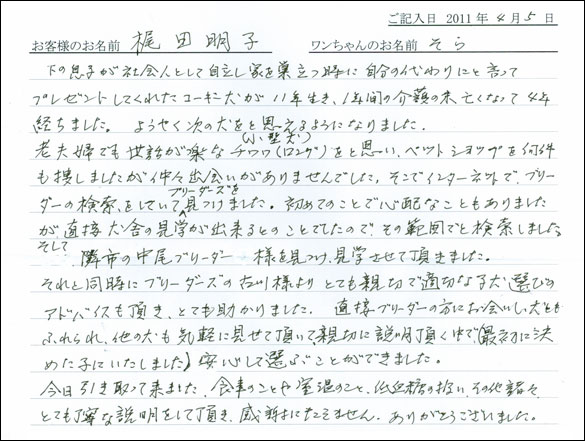 ご記入日 2011年 4月 5日
お客様のお名前 梶田明子 ワンちゃんのお名前 そら
下の息子が社会人として自立し家を巣立つ時に自分の代わりにと言って
プレゼントしてくれたコーギー犬が11年生き、1年間の介護の末亡くなって4年
経ちました。 ようやく次の犬をと思えるようになりました。
老夫婦でも世話が楽なチワワ(ロング)(小型犬)をと思い、ペットショップを何件
も捜しましたが仲々出会いがありませんでした。そこでインターネットで、ブリー
ダーの検索、をしていてブリーダーズを見つけました。初めてのことで心配なこともありました
が直接犬舎の見学が出来るとのことでしたので その範囲でと検索しました
そして 隣市の中尾ブリーダー 様を見つけ、見学させて頂きました。
それと同時にブリーダーズの古川様より とても親切で適切なる犬選びの
アドバイスも頂き、とても助かりました。 直接ブリーダーの方にお会いし犬とも
ふれられ、他の犬も気軽に見せて頂いて親切に説明頂く中で(最初に決
めた子にいたしました)安心して選ぶことができました。
今日引き取って来ました、食事のことや室温のこと、低血糖の扱い、その他諸々
とても丁寧な説明をして頂き、感謝にたえません。ありがとうございました。